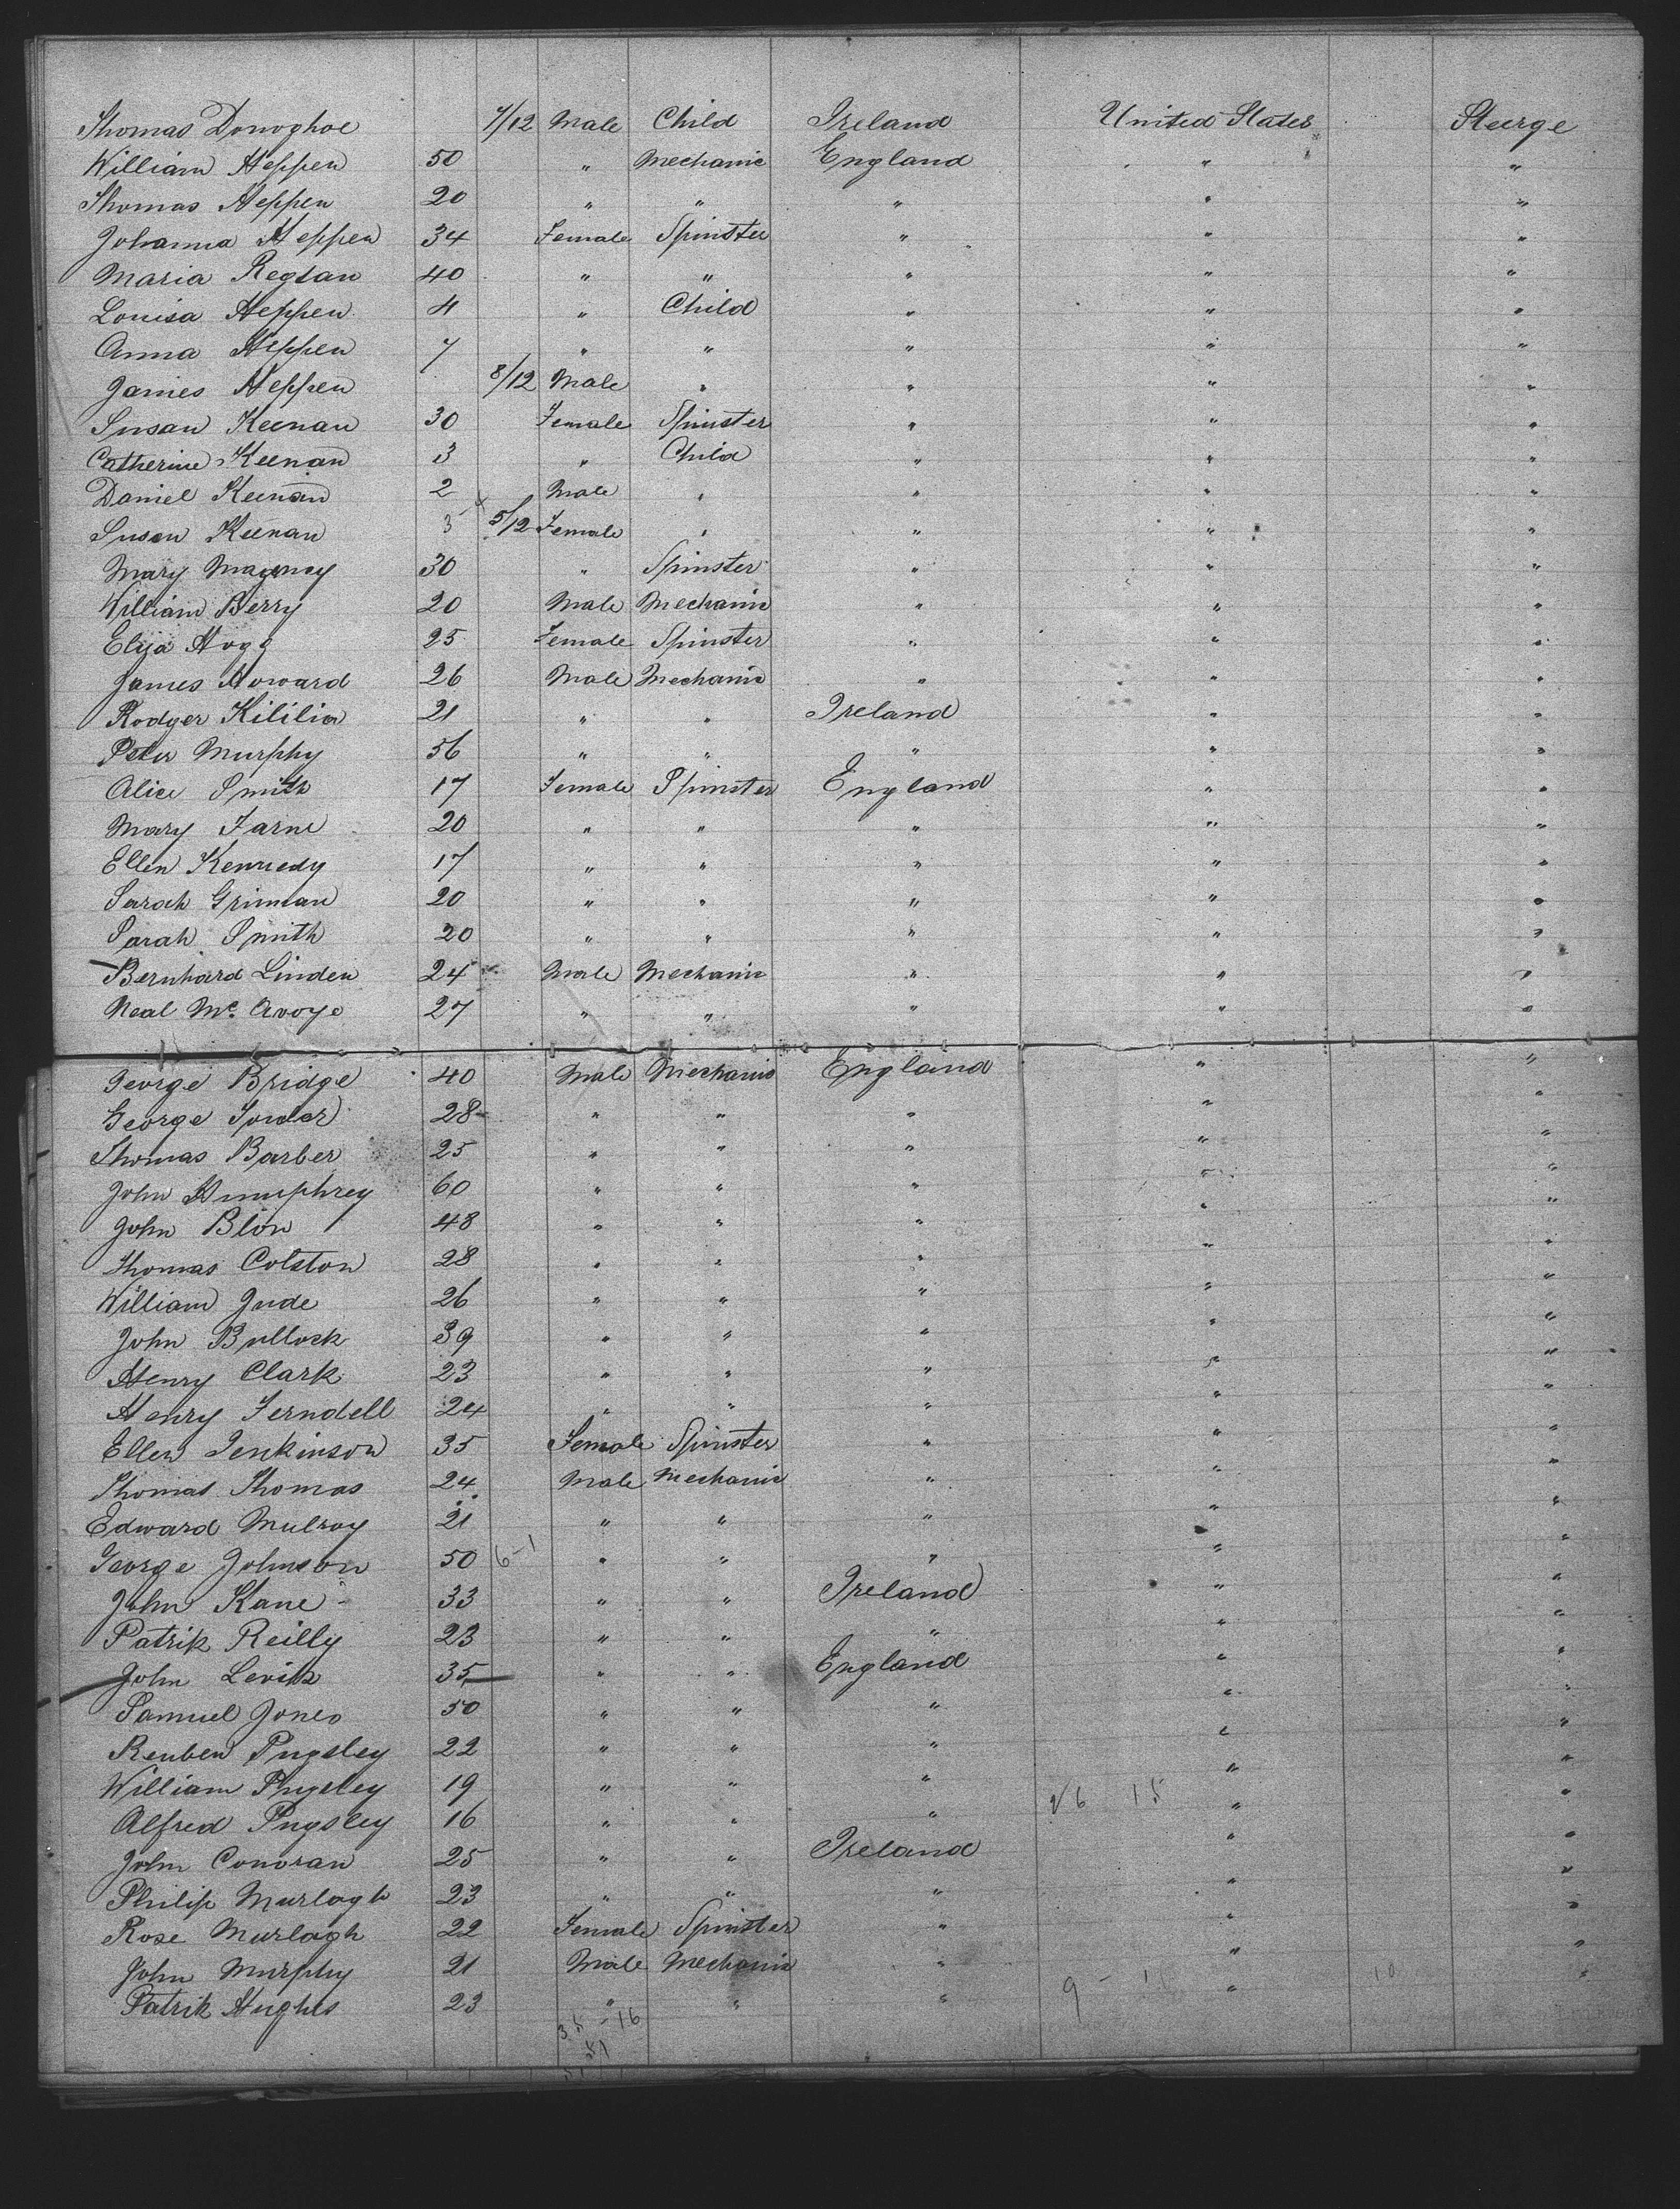 Thomas Donoghoe 7/12 Male Child Ireland United States Steerge
William Heppen 50 " Mechanic England " "
Thomas Heppen 20 " " " " "
Johanna Heppen 34 Female Spinster " " "
Maria Regtan 40 " " " " "
Louisa Heppen 4 " Child " " "
Anna Heppen 7 " " " " "
James Heppen 8/12 Male " " " "
Susan Keenan 30 Female Spinster " " "
Catherine Keenan 3 " Child " " "
Daniel Keenan 2 Male " " " "
Susan Keenan 5/12 Female " " " "
Mary 30 " Spinster " " "
William Berry 20 Male Mechanic " " "
Eliza Hogg 25 Female Spinster " " "
James Howard 26 Male Mechanic " " "
Rodger Kililia 21 " " Ireland " "
Peter Murphy 56 " " " " "
Alice Smith 17 Female Spinster England " "
Mary Farne 20 " " " " "
Ellen Kennedy 17 " " " " "
Sarah Griman 20 " " " " "
Sarah Smith 20 " " " " "
Bernhard Linden 24 Male Mechanic " " "
Neal Mc. Avoye 27 " " " " "
George Bridge 40 Male Mechanic England " "
George 28 " " " " "
Thomas Barber 25 " " " " "
John Humphrey 60 " " " " "
John Blon 48 " " " " "
Thomas Colston 28 " " " " "
William Jude 26 " " " " "
John Bullock 39 " " " " "
Henry Clark 23 " " " " "
Henry Ferndell 24 " " " " "
Ellen Jenkinson 35 Female Spinster " " "
Thomas Thomas 24 Male Mechanic " " "
Edward Mulroy 21 " " " " "
George Johnson 50 6-1 " " " " "
John Kane 33 " " Ireland " "
Patrik Reilly 23 " " " " "
John 35 " " England " "
Samuel Jones 50 " " " " "
Reuben Pugsley 22 " " " " "
William Pugsley 19 " " " " "
Alfred Pugsley 16 " " " " "
John Conoran 25 " " Ireland " "
Philip Murlagh 23 " " " " "
Rose Murlagh 22 Female Spinster " " "
John Murphy 21 Male Mechanic " " "
Patrik Hughes 23 " " " " "